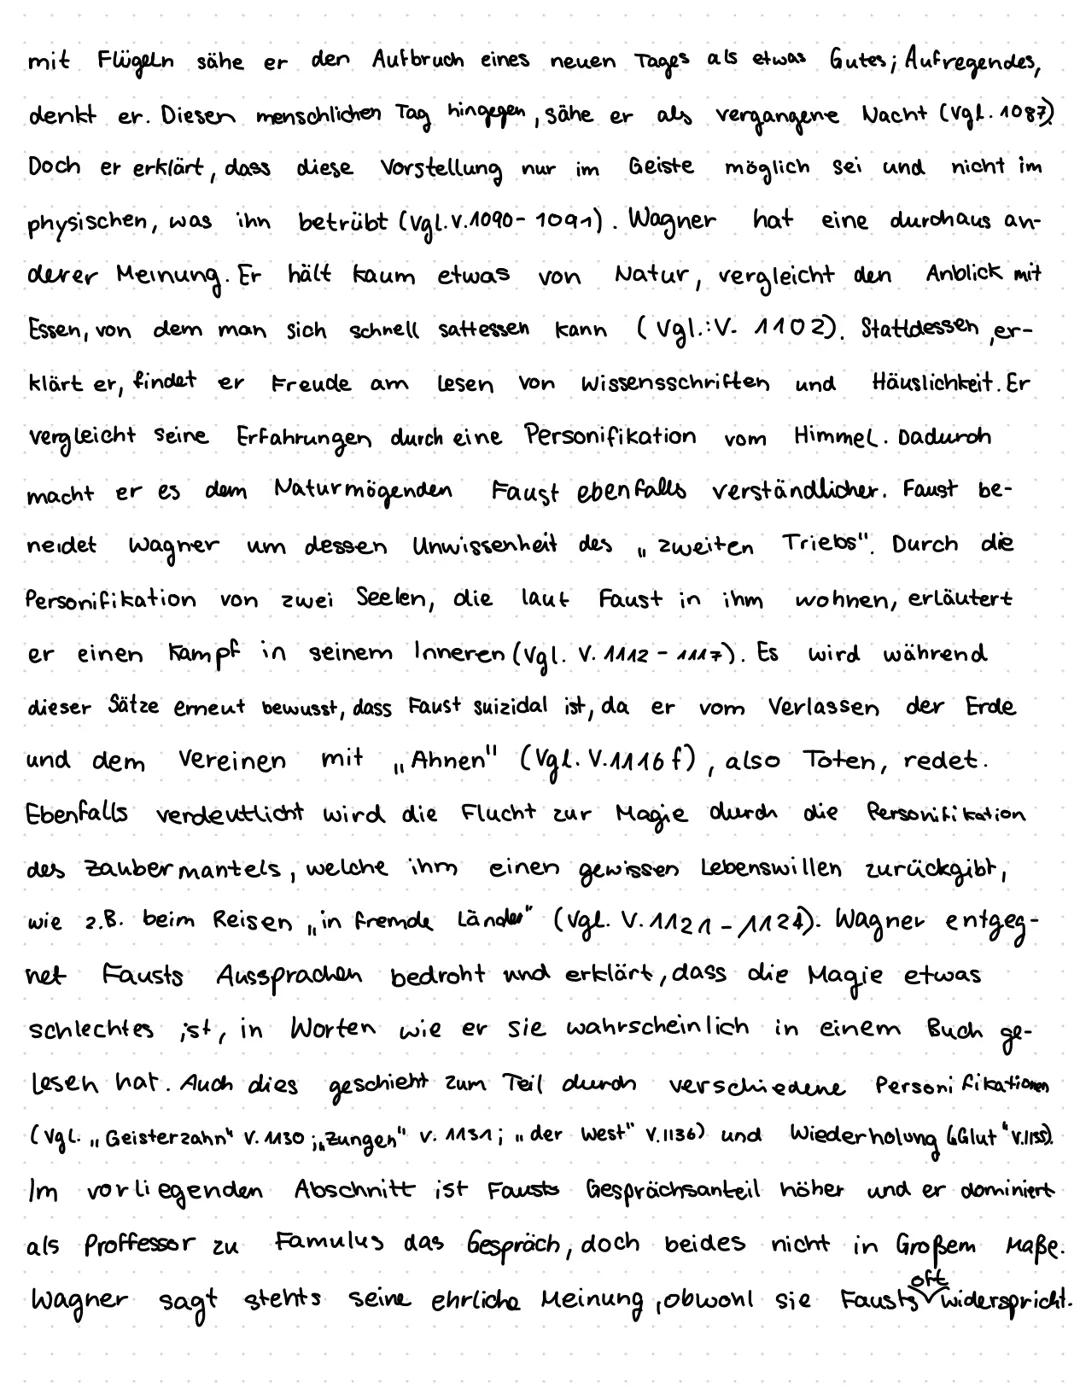 mit Flügeln sähe er den Aufbruch eines neuen Tages als etwas Gutes; Aufregendes,
denkt er. Diesen menschlichen Tag hingegen, sähe er als vergangene Nacht (Vgl. 1087)
Doch er erklärt, dass diese Vorstellung nur im Geiste möglich sei und nicht im
physischen, was ihn betrübt (Vgl. V. 1090-1091). Wagner hat eine durchaus an-
derer Meinung. Er hält kaum etwas von Natur, vergleicht den Anblick mit
Essen, von dem man sich schnell sattessen kann (Vgl.: V. 1102). Stattdessen, er-
klärt er, findet er Freude am Lesen von Wissensschriften und Häuslichkeit. Er
vergleicht seine Erfahrungen durch eine Personifikation vom Himmel. Dadurch
macht er es dem Naturmögenden Faust ebenfalls verständlicher. Faust be-
neidet Wagner um dessen Unwissenheit des „zweiten Triebs". Durch die
Personifikation von zwei Seelen, die laut Faust in ihm wohnen, erläutert
er einen Kampf in seinem Inneren (Vgl. V. 1112 - 1117). Es wird während
dieser Sätze erneut bewusst, dass Faust suizidal ist, da er vom Verlassen der Erde
und dem Vereinen mit „Ahnen" (Vgl. V. 1116 f), also Toten, redet.
Ebenfalls verdeutlicht wird die Flucht zur Magie durch die Personifikation
des Zaubermantels, welche ihm einen gewissen Lebenswillen zurückgibt,
wie z.B. beim Reisen „in fremde Länder" (Vgl. V. 1121 - 1124). Wagner entgeg-
net Fausts Aussprachen bedroht und erklärt, dass die Magie etwas
schlechtes ist, in Worten wie er sie wahrscheinlich in einem Buch ge-
lesen hat. Auch dies geschieht zum Teil durch verschiedene Personifikationen
(Vgl. „Geisterzahn" V. 1130; „Zungen" V. 1131; „der West" V. 1136) und Wiederholung („Glut" V. 1135).
Im vorliegenden Abschnitt ist Fausts Gesprächsanteil höher und er dominiert
als Proffessor zu Famulus das Gespräch, doch beides nicht in Großem Maße.
Wagner sagt stehts seine ehrliche Meinung, obwohl sie Fausts oft widerspricht.